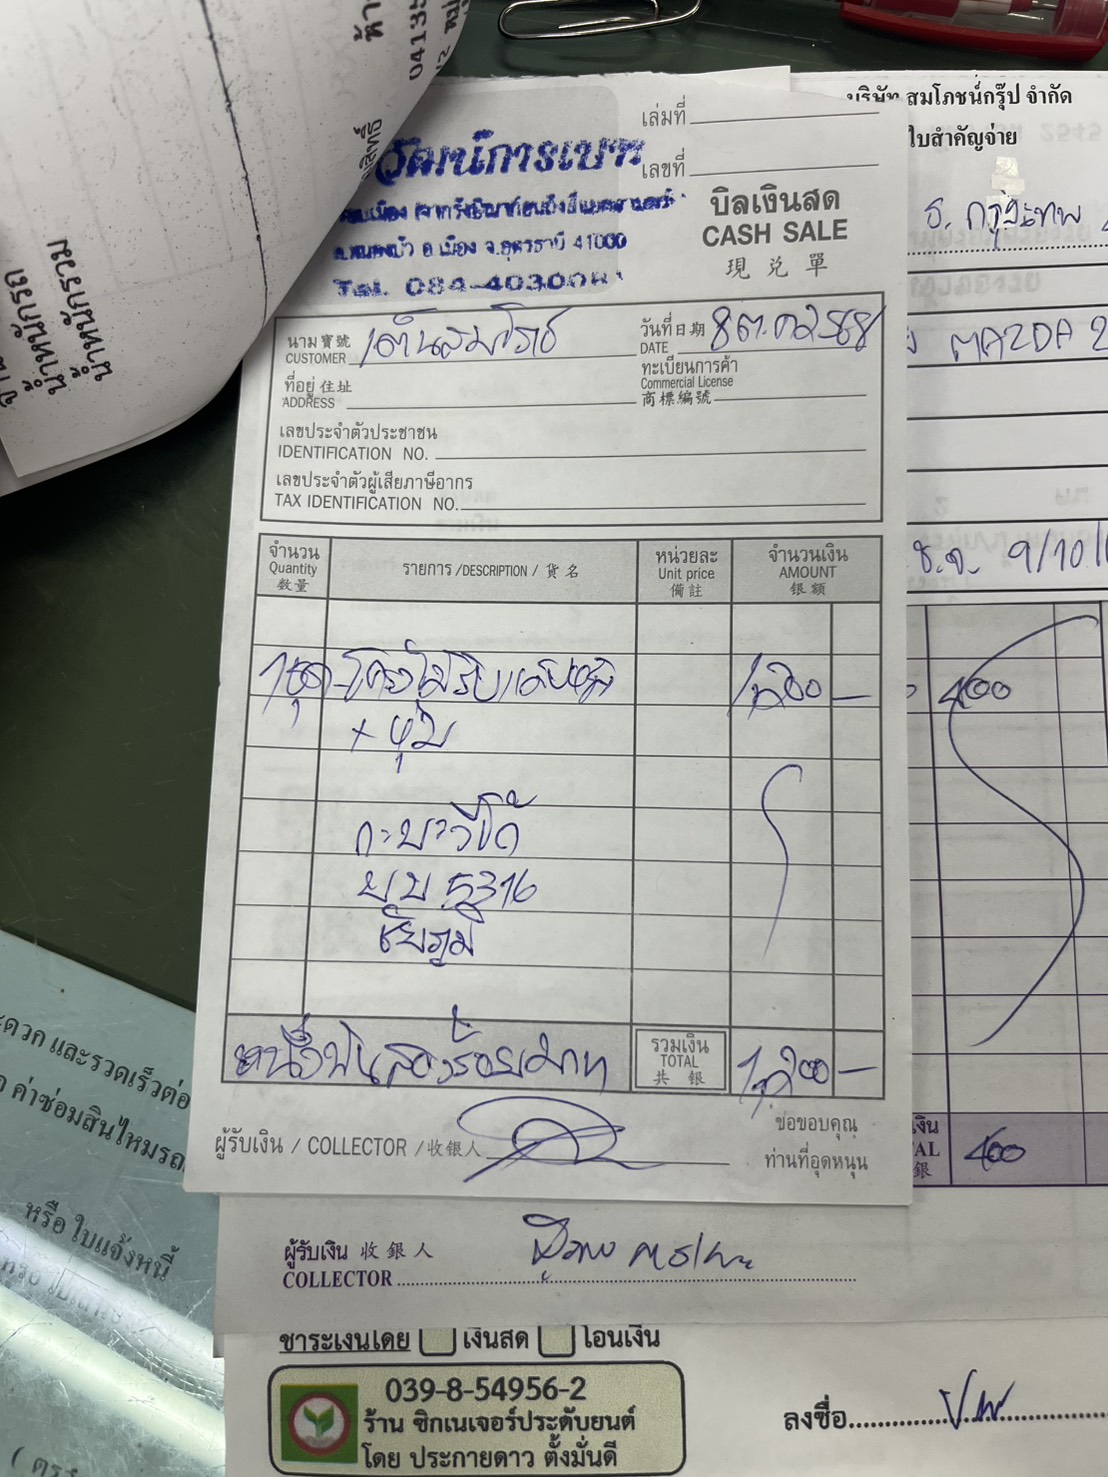 วัฒน์การเบาะ
Tel. 084-403008
เล่มที่
เลขที่
บิลเงินสด
CASH SALE
現兌單
นาม寶號
CUSTOMER เต็นสมโภชน์
วันที่日期
DATE 8 ต.ค 2568
ที่อยู่ 住址
ADDRESS
ทะเบียนการค้า
Commercial License
商標編號
เลขประจำตัวประชาชน
IDENTIFICATION NO.
เลขประจำตัวผู้เสียภาษีอากร
TAX IDENTIFICATION NO.
จำนวน
Quantity
數量
รายการ /DESCRIPTION / 貨名
หน่วยละ
Unit price
備註
จำนวนเงิน
AMOUNT
銀額
1ชุด
1,200 —
+ หุ้ม
กะบะวีโก้
ผบ 5316
ชัยภูมิ
หนึ่งพันสองร้อยบาท
รวมเงิน
TOTAL
共銀
1,200 —
ผู้รับเงิน / COLLECTOR /收銀人
ขอขอบคุณ
ท่านที่อุดหนุน
บริษัท สมโภชน์กรุ๊ป จำกัด
ใบสำคัญจ่าย
ธ. กรุงเทพ
MAZDA 2
ธ.จ. 9/10/
400
เงิน
AL
銀
400
ผู้รับเงิน 收銀人
COLLECTOR
ชำระเงินโดย เงินสด โอนเงิน
039-8-54956-2
ร้าน ซิกเนเจอร์ประดับยนต์
โดย ประกายดาว ตั้งมั่นดี
ลงชื่อ
น้ำหนักรวม
น้ำหนักรถ
ะดวก และรวดเร็วต่อ
ค่าซ่อมสินไหมรถ
หรือ ใบแจ้งหนี้